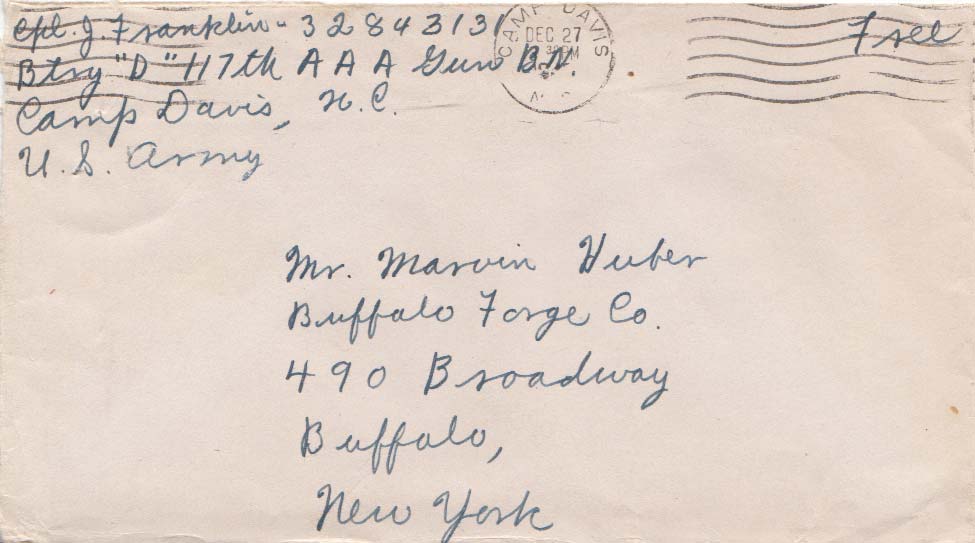 Cpl. J. Franklin - 32843131
Btry "D" 117th AAA Gun BN.
Camp Davis, N.C.
U.S. Army
CAMP DAVIS
DEC 27
Free
Mr. Marvin Huber
Buffalo Forge Co.
490 Broadway
Buffalo,
New York